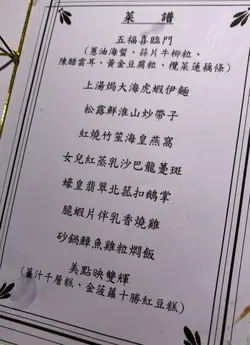 菜譜
五福喜臨門
(蔥油海蜇、蒜片牛柳粒、
陳醋雲耳、黃金豆腐粒、欖菜蓮藕條)
上湯焗大海虎蝦伊麵
松露鮮淮山炒帶子
紅燒竹笙海皇燕窩
女兒紅蒸乳沙巴龍躉斑
蠔皇翡翠北菰扣鵝掌
脆蝦片伴乳香燒雞
砂鍋鱆魚雞粒燜飯
美點映雙輝
(薑汁千層糕、金菠蘿十勝紅豆糕)